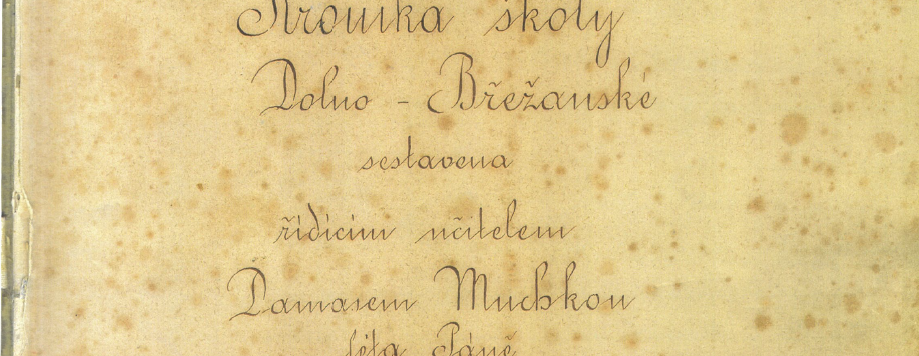 Kronika školy
Dolno - Břežanské
sestavena
řídícím učitelem
Damasem Muchkou
léta Páně